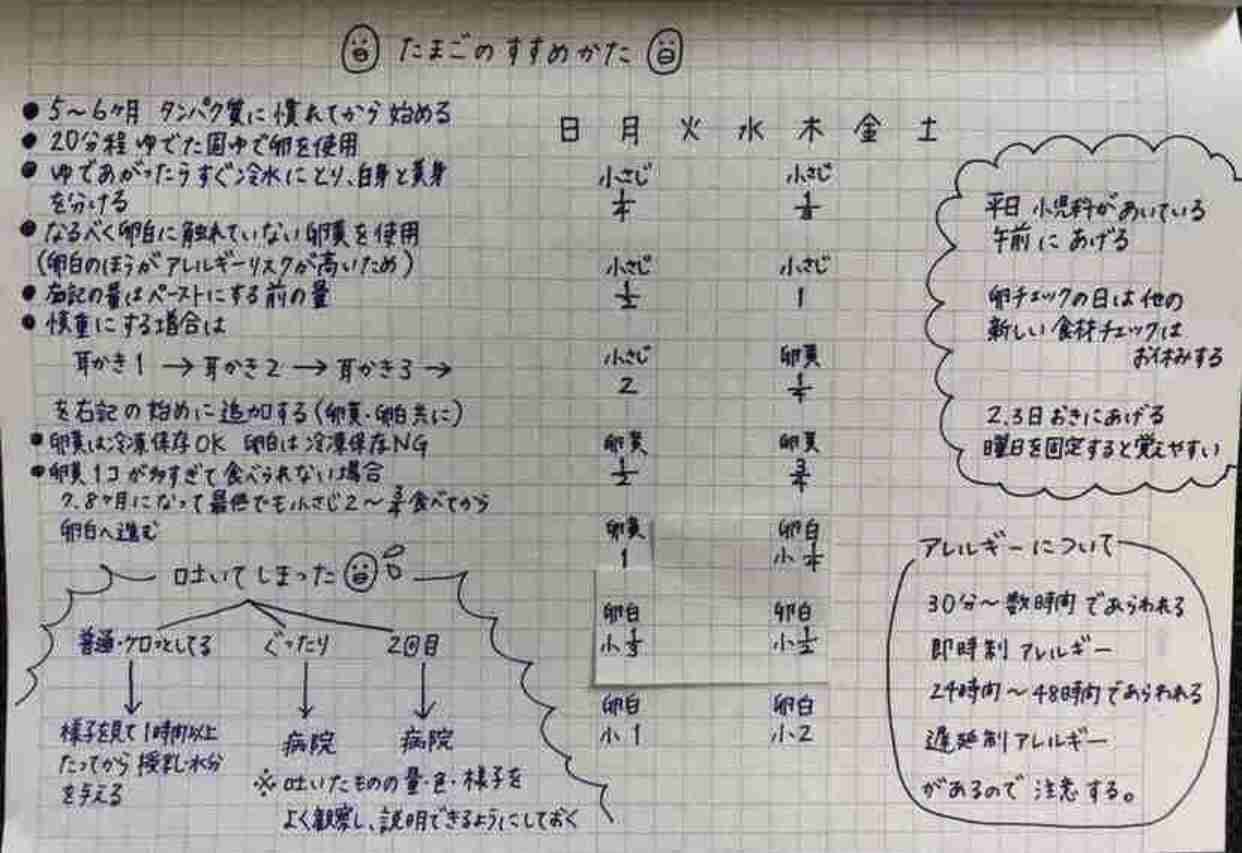 たまごのすすめかた
● 5〜6ヶ月 タンパク質に慣れてから始める
● 20分程ゆでた固ゆで卵を使用
● ゆであがったらすぐ冷水にとり、白身と黄身
を分ける
● なるべく卵白に触れていない卵黄を使用
(卵白のほうがアレルギーリスクが高いため)
● 右記の量はペーストにする前の量
● 慎重にする場合は
耳かき1 → 耳かき2 → 耳かき3 →
を右記の始めに追加する(卵黄・卵白共に)
● 卵黄は冷凍保存OK 卵白は冷凍保存NG
● 卵黄1コが多すぎて食べられない場合
7.8ヶ月になって最低でも小さじ2〜3/4食べてから
卵白へ進む
日 月 火 水 木 金 土
小さじ 小さじ
1/4
小さじ 小さじ
1/2 1
小さじ 卵黄
2 1/4
卵黄 卵黄
1/2 3/4
卵黄 卵白
1 小1/4
卵白 卵白
小1/3 小1/2
卵白 卵白
小1 小2
平日 小児科があいている
午前にあげる
卵チェックの日は他の
新しい食材チェックは
お休みする
2.3日おきにあげる
曜日を固定すると覚えやすい
吐いてしまった
普通・ケロッとしてる ぐったり 2回目
様子を見て1時間以上
たってから授乳・水分
を与える
病院 病院
※ 吐いたものの量・色・様子を
よく観察し、説明できるようにしておく
アレルギーについて
30分〜数時間であらわれる
即時制アレルギー
24時間〜48時間であらわれる
遅延制アレルギー
があるので注意する。